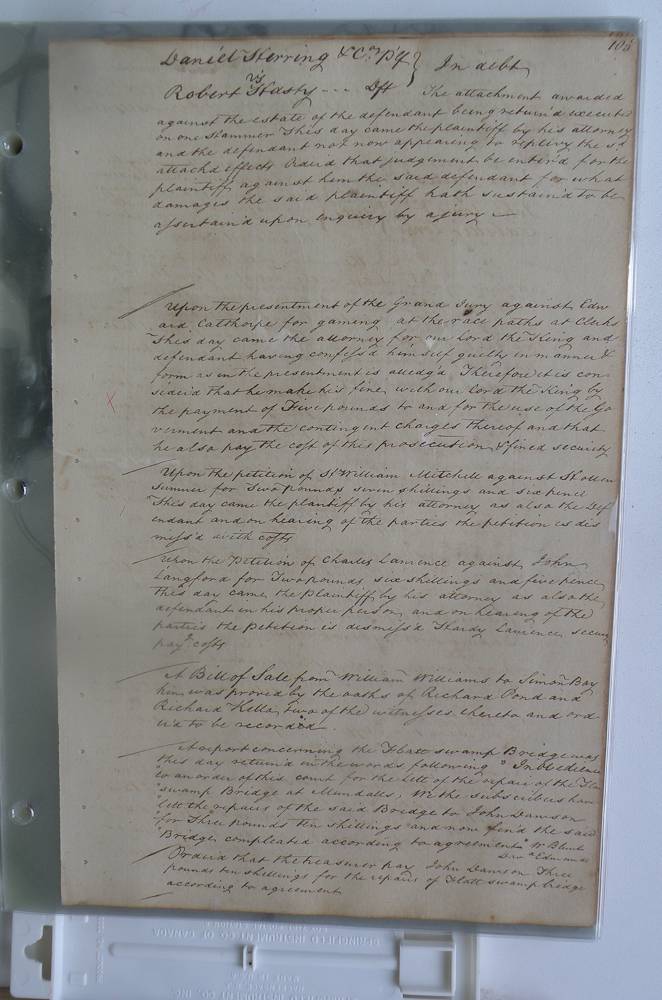 105
Daniel Herring & Co. Pl'f } In debt
vs
Robert Hasty --- Dft The attachment awarded
against the Estate of the defendant being return'd executed
on one Hammer This day came the plaintiff by his attorney
and the defendant not now appearing to replevy the s'd
attach'd effects Order'd that judgement be enter'd for the
plaintiff against him the said defendant for what
damages the said plaintiff hath sustain'd to be
assertain'd upon enquiry by a jury
Upon the presentment of the Grand Jury against Edw
ard Calthorpe for gaming at the race paths at Clerks
This day came the attorney for our Lord the King and
defendant having confess'd himself guilty in manner &
form as in the presentment is alledg'd Therefore it is con
sider'd that he make his fine with our Lord the King by
the payment of Five pounds to and for the use of the Go
verment and the contingent charges thereof and that
he also pay the cost of this prosecution & find security
Upon the petition of William Mitchell against
Sumner for Two pounds seven shillings and six pence
This day came the plantiff by his attorney as also the Def
endant and on hearing of the parties the petition is dis
miss'd with costs
Upon the Petition of Charles Laurence against John
Langford for Two pounds six shillings and five pence
this day came the Plaintiff by his attorney as also the
defendant in his proper person and on hearing of the
parties the Petition is dismiss'd Hardy Laurence security
pay'g costs
A Bill of Sale from William Williams to Simon Boy
kin was proved by the oaths of Richard Pond and
Richard Kello two of the witnesses thereto and ord
er'd to be recorded
A report concerning the Flatt swamp Bridge was
this day return'd in the words following "In obedience
"to an order of this court for the lett of the repair of the Flatt
"swamp Bridge at Mundalls, We the subscribers have
"lett the repairs of the said Bridge to John Dawson
"for Three pounds ten shillings and now find the said
"Bridge compleated according to agreement" W Blunt
Edmunds
Order'd that the treasurer pay John Dawson Three
pounds ten shillings for the repairs of Flatt swamp bridge
according to agreement
DEPARTMENT INSTRUMENT CO. INC.
OF CANADA